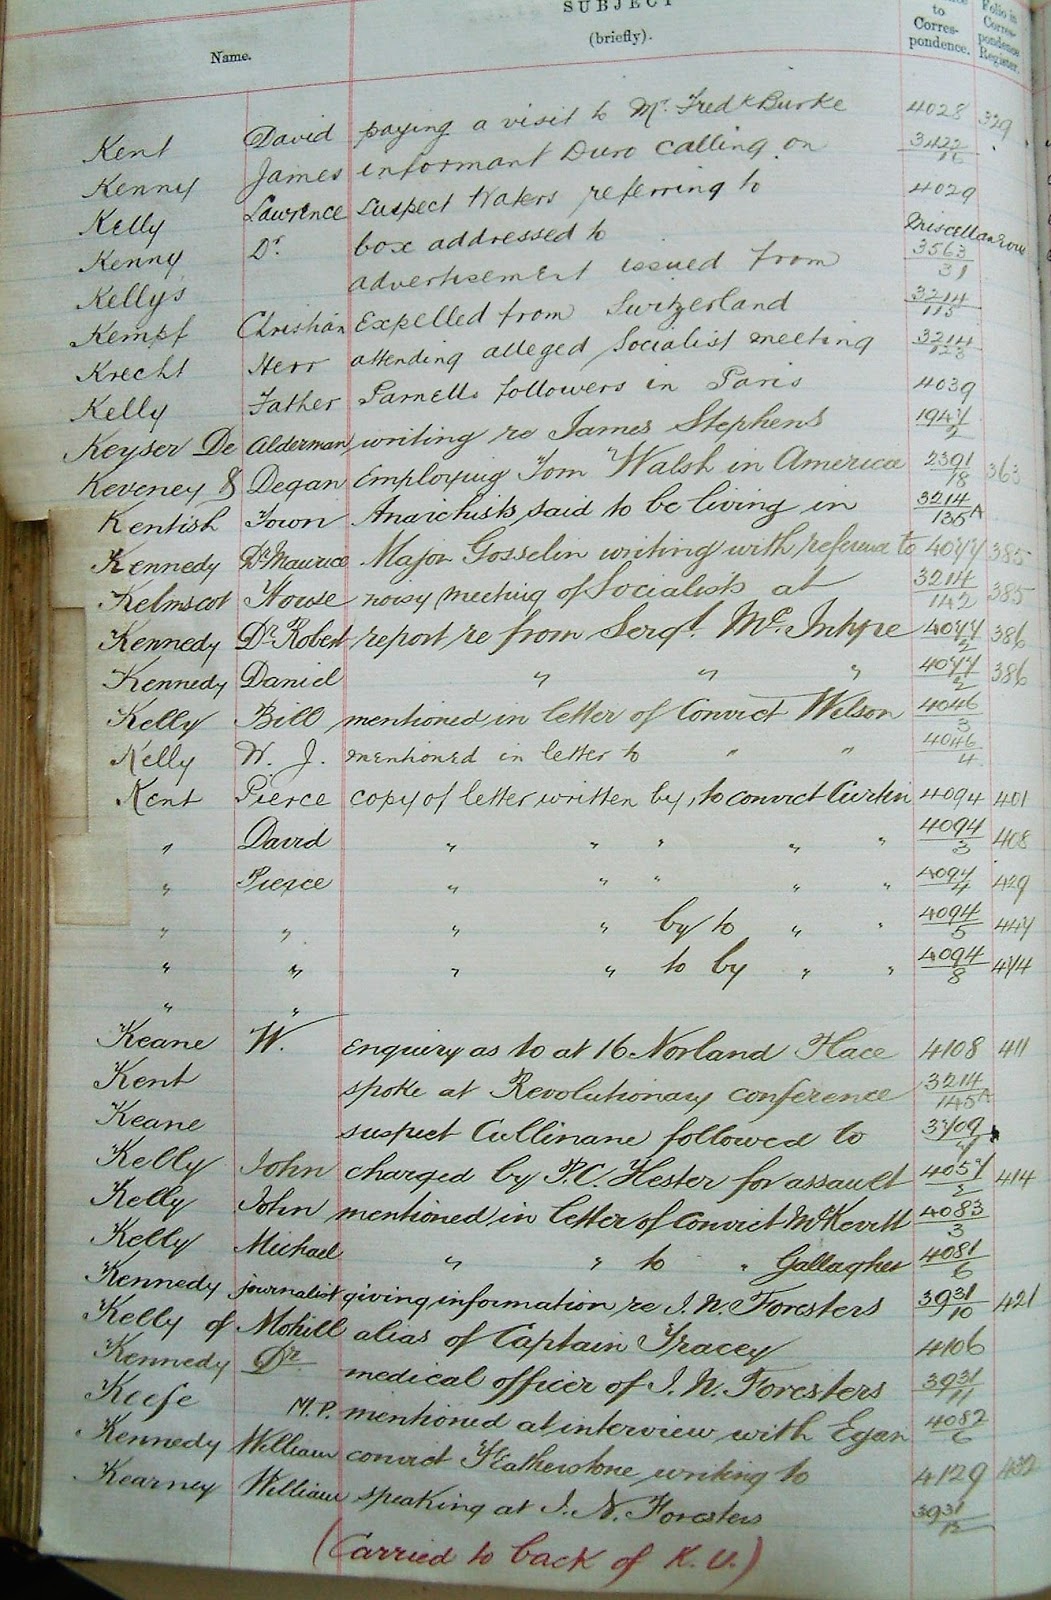 SUBJECT
(briefly).
Name.
to Corres- pondence.
Folio in Corres- pondence Register.
Kent David paying a visit to Mr. Fredk Burke 4028 329
Kenny James informant Duro calling on 3422/15
Kelly Lawrence suspect Waters referring to 4029
Kenny Dr. box addressed to Miscellaneous
Kellys advertisement issued from 3563/31
Kempf Christian Expelled from Switzerland 3214/115
Krecht Herr attending alleged Socialist meeting 3214/123
Kelly Father Parnells followers in Paris 4039
Keyser De Alderman writing re James Stephens 1947/2
Keveney & Degan Employing Tom Walsh in America 2391/18 363
Kentish Town Anarchists said to be living in 3214/135A
Kennedy Dr Maurice Major Gosselin writing with reference to 4077 385
Kelmscot House noisy meeting of Socialists at 3214/142 385
Kennedy Dr Robert report re from Sergt. McIntyre 4077/2 386
Kennedy Daniel " " " 4077/2 386
Kelly Bill mentioned in letter of Convict Wilson 4046/3
Kelly W. J. mentioned in letter to " " 4046/4
Kent Pierce copy of letter written by, to convict Curtin 4094 401
" David " " " " " 4094/3 408
" Pierce " " " " " 4094/4 429
" " " " by to " " 4094/5 447
" " " " to by " " 4094/8 474
" "
Keane W. enquiry as to at 16 Norland Place 4108 411
Kent spoke at Revolutionary conference 3214/145A
Keane suspect Cullinane followed to 3709/7
Kelly John charged by P.C. Hester for assault 4057/2 414
Kelly John mentioned in letter of Convict McKevitt 4083/3
Kelly Michael " " to " Gallagher 4081/6
Kennedy journalist giving information re I.N. Foresters 3931/10 421
Kelly of Mohill alias of Captain Tracey 4106
Kennedy Dr medical officer of I.N. Foresters 3931/11
Keefe M.P. mentioned at interview with Egan 4082/6
Kennedy William convict Featherstone writing to 4129 432
Kearney William speaking at I.N. Foresters 3931/13
(Carried to back of K.U.)